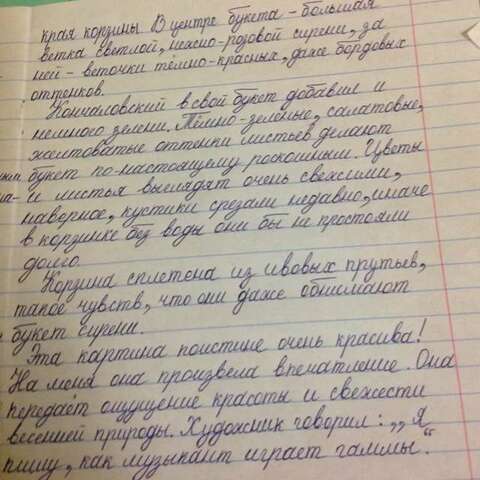 края корзины В центре букета - большая
ветка светлой, нежно-розовой сирени, за
ней - веточки тёмно-красных, даже бордовых
оттенков.
Кончаловский в свой букет добавил и
немного зелени. Тёмно-зелёные, салатовые,
желтоватые оттенки листьев делают
букет по-настоящему роскошным. Цветы
и листья выглядят очень свежими,
наверное, кустики срезали недавно, иначе
в корзинке без воды они бы не простояли
долго
Корзина сплетена из ивовых прутьев,
такое чувств, что они даже обнимают
букет сирени.
Эта картина поистине очень красива!
На меня она произвела впечатление. Она
передаёт ощущение красоты и свежести
весенней природы. Художник говорил: ,,Я
пишу, как музыкант играет гаммы."